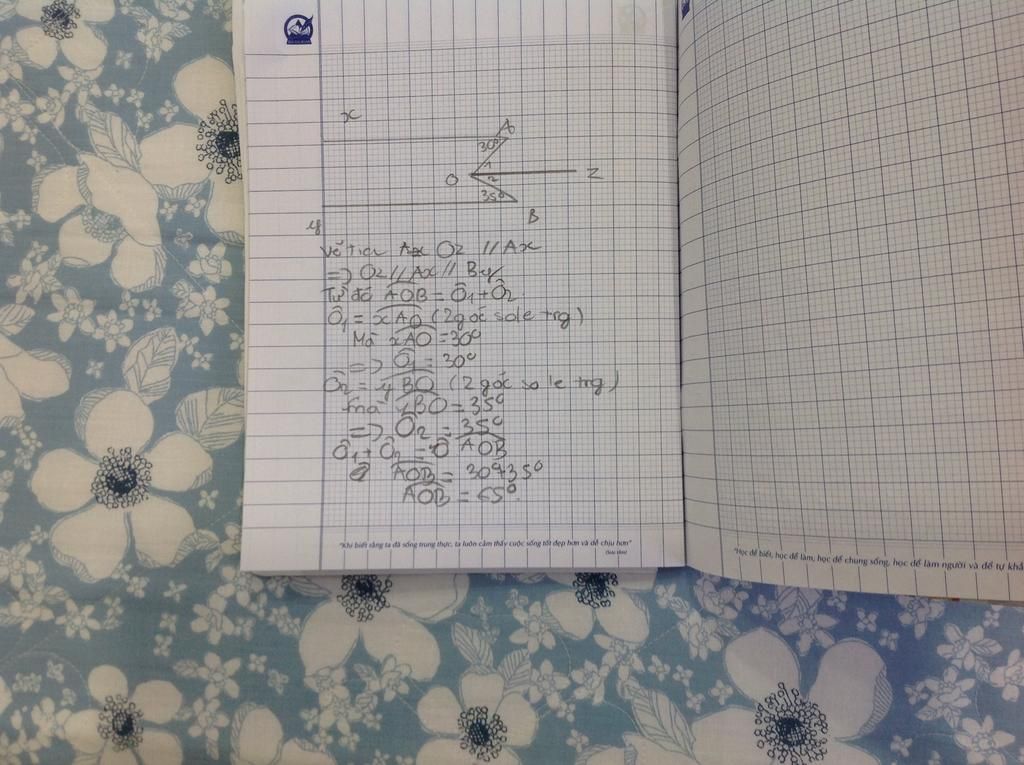 x
A
30°
1
O
2
z
35°
B
y
Vẽ tia Oz // Ax
=> Oz // Ax // By
Từ đó AOB = Ô1 + Ô2
Ô1 = xAO (2 góc sole trg)
Mà xAO = 30°
=> Ô1 = 30°
Ô2 = yBO (2 góc sole trg)
mà yBO = 35°
=> Ô2 = 35°
Ô1 + Ô2 = AOB
AOB = 30°+35°
AOB = 65°.
"Khi biết rằng ta đã sống trung thực, ta luôn cảm thấy cuộc sống tốt đẹp hơn và dễ chịu hơn"
"Học để biết, học để làm, học để chung sống, học để làm người và để tự khẳ